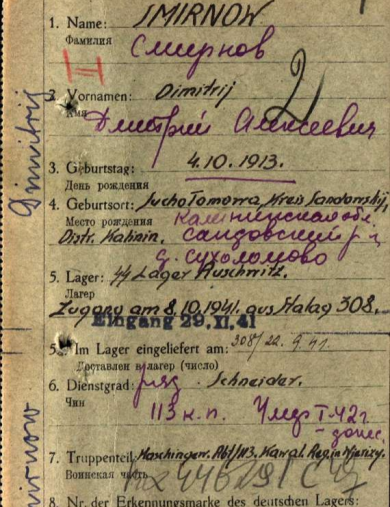 1. Name: SMIRNOW
Фамилия Смирнов
2. Vornamen: Dimitrij
Имя Дмитрий Алексеевич
3. Geburtstag: 4.10.1913.
День рождения
4. Geburtsort: Suchotomowa, Kreis Sandowskij,
Место рождения Калининская обл.
Distr. Kalinin. Сандовский р-н
д. Сухоломово
5. Lager: Lager Auschwitz.
Лагер
Zugang am 8.10.1941. aus Stalag 308.
Eingang 29. XI. 41
5a. Im Lager eingeliefert am: 308/22. 9. 41.
Доставлен в лагер (число)
6. Dienstgrad: Schneider.
Чин
113 к.п. Умер 42г.
7. Truppenteil: 113. Kaval. Regin
Воинская часть
8. Nr. der Erkennungsmarke des deutschen Lagers:
Dimitrij